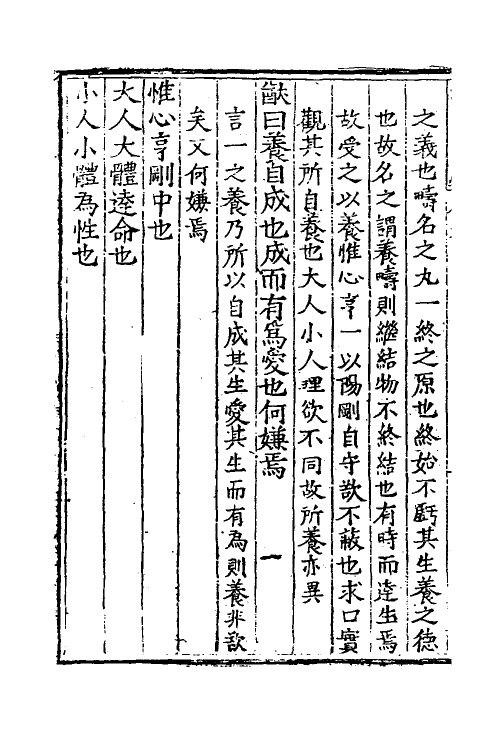 之義也疇名之丸一終之原也終始不虧其生養之德
也故名之謂養疇則繼結物不終結也有時而逹生焉
故受之以養惟心亨一以陽剛自守欲不蔽也求口實
觀其所自養也大人小人理欲不同故所養亦異
猷曰養自成也成而有爲愛也何嫌焉　一
言一之養乃所以自成其生愛其生而有為則養非欲
矣又何嫌焉
惟心亨剛中也
大人大體逹命也
小人小體為性也